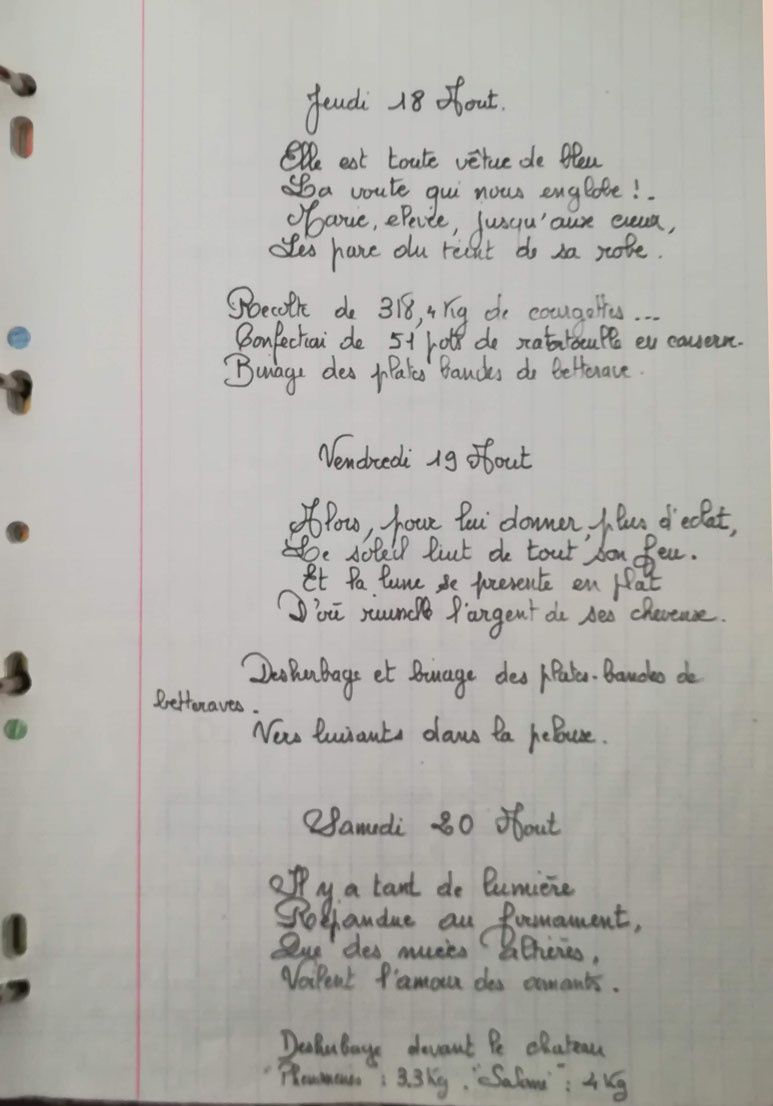 Jeudi 18 Aout.
Elle est toute vêtue de bleu
La voute qui nous englobe !.
Marie, elevée, jusqu'aux cieux,
Les pare du teint de sa robe.
Recolte de 318,4 Kg de courgettes ...
Confection de 51 pots de ratatouille en conserve.
Binage des plates bandes de betterave.
Vendredi 19 Aout
Alors, pour lui donner, plus d'eclat,
Le soleil luit de tout son feu.
Et la lune se presente en plat
D'où ruisselle l'argent de ses cheveux.
Desherbage et binage des plates-bandes de
betteraves.
Vers luisants dans la pelouse.
Samedi 20 Aout
Il y a tant de lumière
Répandue au firmament,
Que des nuées
Voilent l'amour des amants.
Desherbage devant le chateau
: 3.3 Kg. : 4 Kg